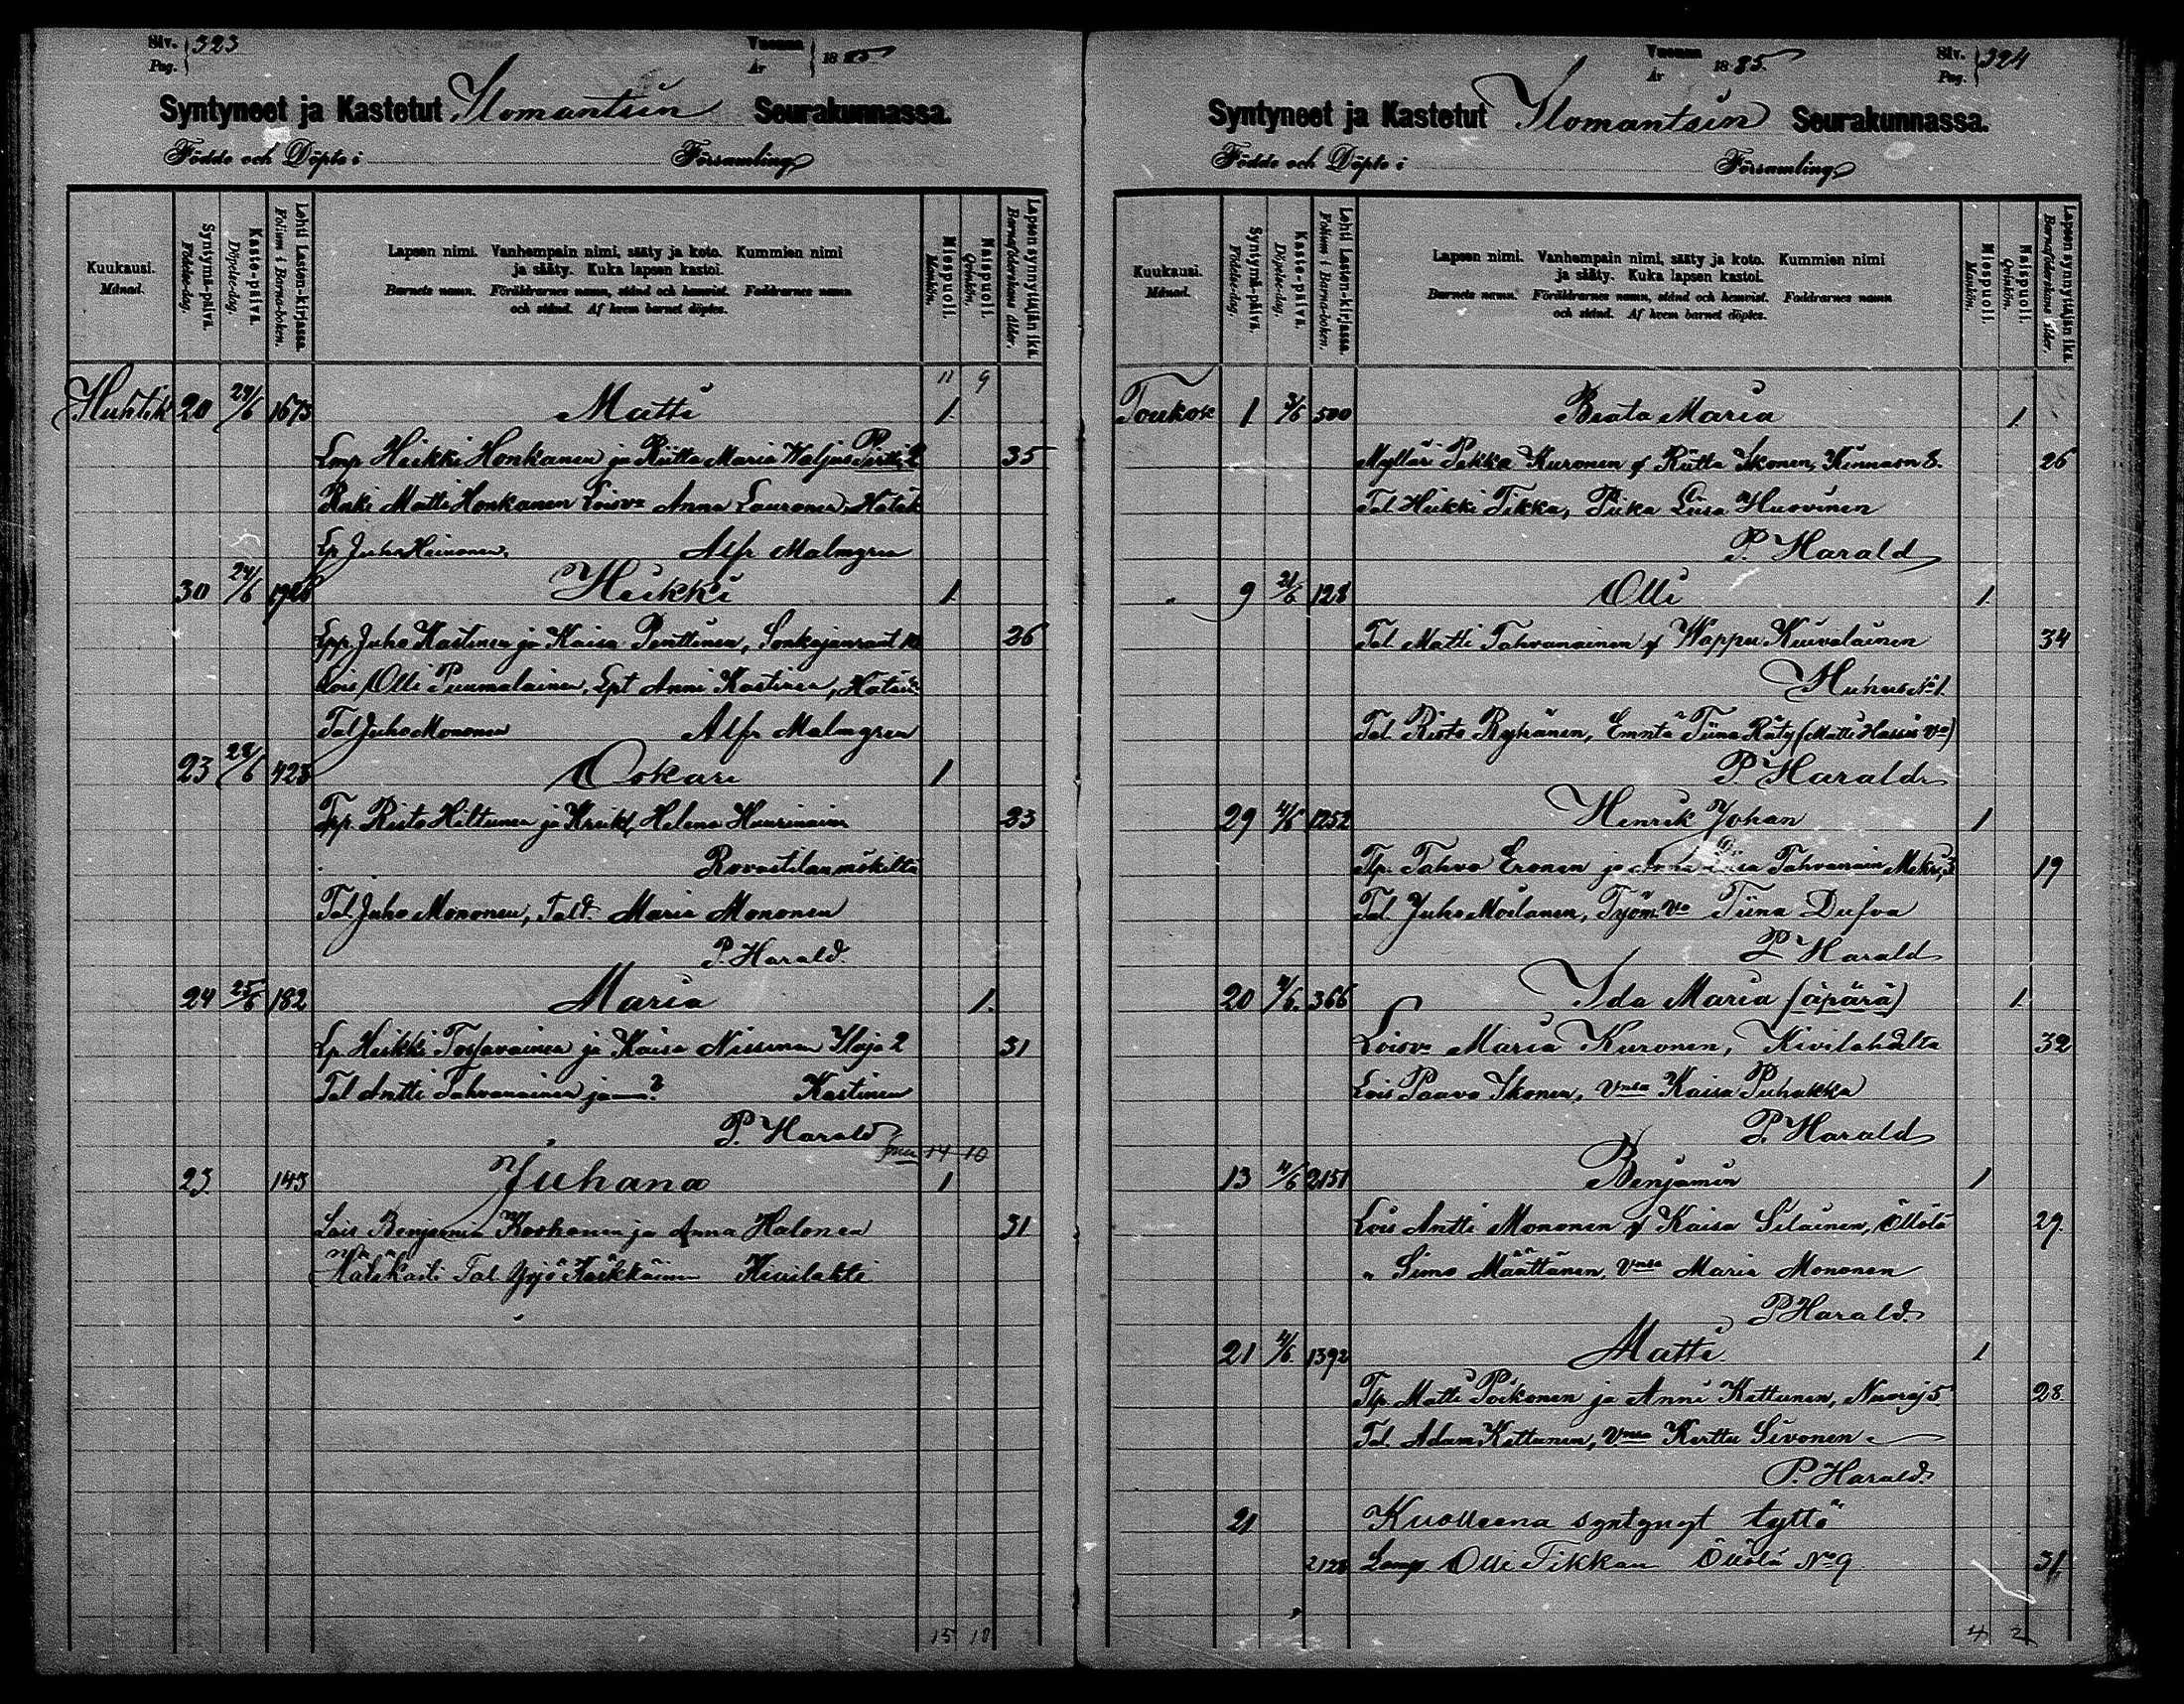 Siv. Pag. 323 Vuonna År 1885
Syntyneet ja Kastetut Ilomantsin Seurakunnassa.
Födde och Döpte i Församling
Kuukausi. Månad.
Syntymä-päivä. Födelse-dag.
Kaste-päivä. Döpelse-dag.
Lehti Lasten-kirjassa. Folium i Barna-boken.
Lapsen nimi. Vanhempain nimi, sääty ja koto. Kummien nimi
ja sääty. Kuka lapsen kastoi.
Barnets namn. Föräldrarnes namn, stånd och hemvist. Faddrarnes namn
och stånd. Af hvem barnet döptes.
Miespuoli. Mankön.
Naispuoli. Qvinkön.
Lapsen synnyttäjän ikä. Barnaföderskans ålder.
11 9
Huhtik 20 24/6 1673 Matti 1.
Lmp Heikki Honkanen ja Riitta Maria Waljus 2 35
Renki Matti Honkanen Loisva Anna Lauronen, Hatuk
Lp Juho Heinonen, Alfr Malmgren
30 24/6 Heikki 1.
Lpp. Juho Kastinen ja Kaisa Penttinen, Sonkajanrant 10 26
Lois Olli Puumalainen, Lpt Anni Kastinen,
Tal Juho Mononen Alfr Malmgren
23 24/6 423 Oskari 1
Tpp. Risto Hiltunen ja Helena 23
Rovastilan mökiltä
Tal. Juho Mononen, Tal d. Maria Mononen
P. Harald.
24 25/6 182 Maria 1.
Lp Heikki Tossavainen ja Kaisa Nissinen Ilaja 2 31
Tal Antti Tahvanainen ja —? Kastinen
P. Harald
14 10
23. 143 Juhana 1
Lois Benjamin Korhonen ja Anna Halonen 31.
Hätäkasti Tal. Yrjö Kivilahti
15 10
Vuonna År 1885. Siv. Pag. 324
Syntyneet ja Kastetut Ilomantsin Seurakunnassa.
Födde och Döpte i Församling
Kuukausi. Månad.
Syntymä-päivä. Födelse-dag.
Kaste-päivä. Döpelse-dag.
Lehti Lasten-kirjassa. Folium i Barna-boken.
Lapsen nimi. Vanhempain nimi, sääty ja koto. Kummien nimi
ja sääty. Kuka lapsen kastoi.
Barnets namn. Föräldrarnes namn, stånd och hemvist. Faddrarnes namn
och stånd. Af hvem barnet döptes.
Miespuoli. Mankön.
Naispuoli. Qvinkön.
Lapsen synnyttäjän ikä. Barnaföderskans ålder.
Toukok 1. 3/6 500 Beata Maria 1.
Mylläri Pekka Kuronen & Riitta Ikonen, Kinnasn 8. 26
Tal Heikki Tikka, Piika Liisa Huovinen
P. Harald
" 9 21/5 128 Olli 1.
Tal. Matti Tahvanainen & Wappu Kuivalainen 34
Huhus No 1.
Tal. Risto Ryhänen, Emntä Tiina Räty (Matti Hassis va)
P. Harald
29 4/6 1252 Henrik Johan 1
Tlp. Tahvo Eronen ja Anna Liisa Tahvanain Mekr, 3 19
Tal. Juho Moilanen, Työm. va Tiina Dufva
P. Harald
20 4/6. 366 Ida Maria (äpärä) 1.
Loisva Maria Kuronen, Kivilahdelta 32
Lois Paavo Ikonen, Vnsa Kaisa Puhakka
P. Harald
13 4/6 2151 Benjamin 1
Lois Antti Mononen & Kaisa Silainen, Öllölä 29.
" Simo Määttänen, Vnsa Maria Mononen
P Harald.
21 4/6. 1392 Matti 1
Tlp. Matti Poikonen ja Anni Kettunen, Nuoraj 5 28.
Tal. Adam Kettunen, Vnsa Kerttu Sivonen
P. Harald.
21 Kuolleena syntynyt tyttö
2128 Lamp. Olli Tikkan Öllölä No 9 31.
4 2